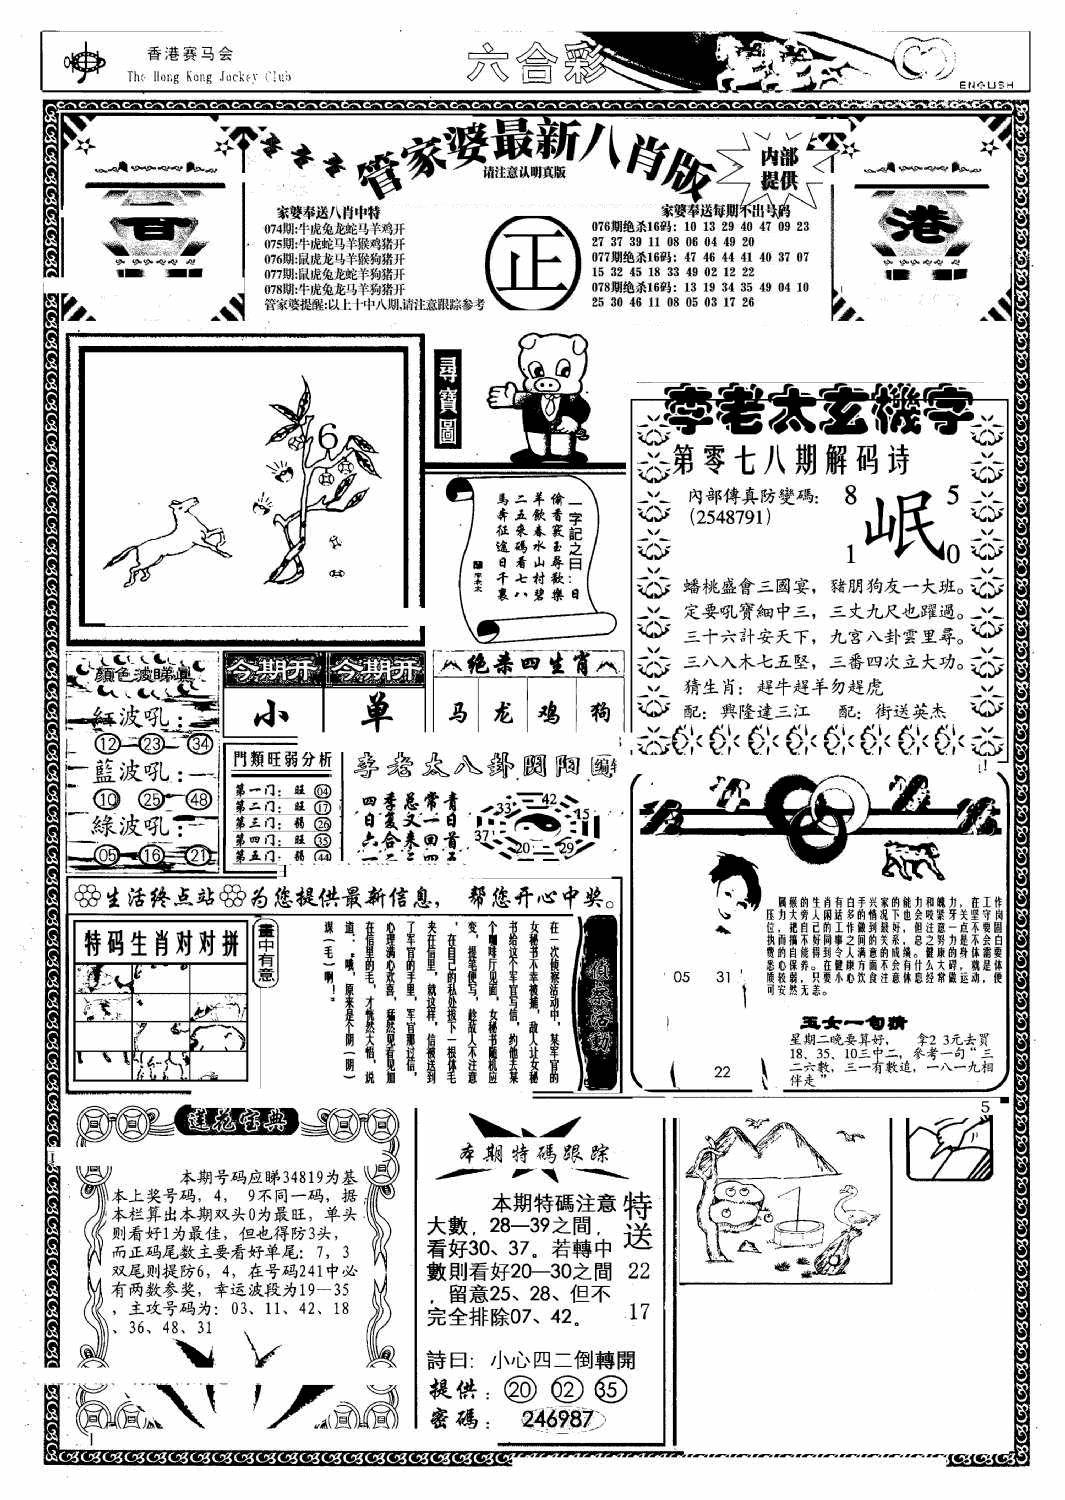 香港赛马会
The Hong Kong Jockey Club
六合彩
ENGLISH
管家婆最新八肖版
请注意认明真版
内部
提供
港
家婆奉送八肖中特
074期:牛虎兔龙蛇马羊鸡开
075期:牛虎蛇马羊猴鸡猪开
076期:鼠虎龙马羊猴狗猪开
077期:鼠虎兔龙蛇羊狗猪开
078期:牛虎兔龙马羊狗猪开
管家婆提醒:以上十中八期,请注意跟踪参考
正
家婆奉送每期不出号码
076期绝杀16码: 10 13 29 40 47 09 23
27 37 39 11 08 06 04 49 20
077期绝杀16码: 47 46 44 41 40 37 07
15 32 45 18 33 49 02 12 22
078期绝杀16码: 13 19 34 35 49 04 10
25 30 46 11 08 05 03 17 26
6
尋寶圖
一字記之曰:日
偷香竊玉尋歡樂
羊飲春水山村碧
二五來碼看七八
馬奔征途日千裏
李老太玄機字
第零七八期解码诗
內部傳真防變碼:
(2548791)
8 5
岷
1 0
蟠桃盛會三國宴,豬朋狗友一大班。
定要吼寶細中三,三丈九尺也躍過。
三十六計安天下,九宮八卦雲里尋。
三八入木七五堅,三番四次立大功。
猜生肖: 趕牛趕羊勿趕虎
配: 興隆達三江 配: 街送英杰
顏色波睇真
紅波吼:
12 23 34
藍波吼:
10 25 48
綠波吼:
05 16 21
今期开 今期开
小 单
绝杀四生肖
马 龙 鸡 狗
門類旺弱分析
第一门: 旺 04
第二门: 旺 17
第三门: 弱 26
第四门: 旺 35
第五门: 弱 44
李老太八卦阴阳编
青日首五
常一回四
总又来三
季复合二
四日六一
33 42 15
37 20 29
生活终点站 为您提供最新信息, 帮您开心中奖。
特码生肖对对拼
畫中有意
在一次侦察活动中,某军官的
女秘书不幸被捕,敌人让女秘
书给这个军官写信,约他去某
个咖啡厅见面,女秘书随机应
变,提笔便写,趁敌人不注意
,在自己的私处拔下一根体毛
夹在信里,就这样,信被送到
了军官的手里,军官那过信,
心理满心欢喜,猛然见看见加
在信里的毛,才恍然大悟,说
道:“哦,原来是个阴(阴)
谋(毛)啊!”
偵察活動
05 31
22
玉女一句猜
星期二晚要算好, 拿2 3元去買
18、35、10三中二,參考一句“三
二六數,三一有數追,一八一九相
伴走”
蓮花宝典
本期号码应睇34819为基
本上奖号码,4, 9不同一码,据
本栏算出本期双头0为最旺,单头
则看好1为最佳,但也得防3头,
而正码尾数主要看好单尾: 7, 3
双尾则提防6, 4, 在号码241中必
有两数参奖,幸运波段为19—35
,主攻号码为: 03、11、42、18
、36、48、31
本期特碼跟踪
本期特碼注意
大數,28—39之間,
看好30、37。若轉中
數則看好20—30之間
,留意25、28、但不
完全排除07、42。
特
送
22
17
詩曰: 小心四二倒轉開
提供: 20 02 35
密碼: 246987
5